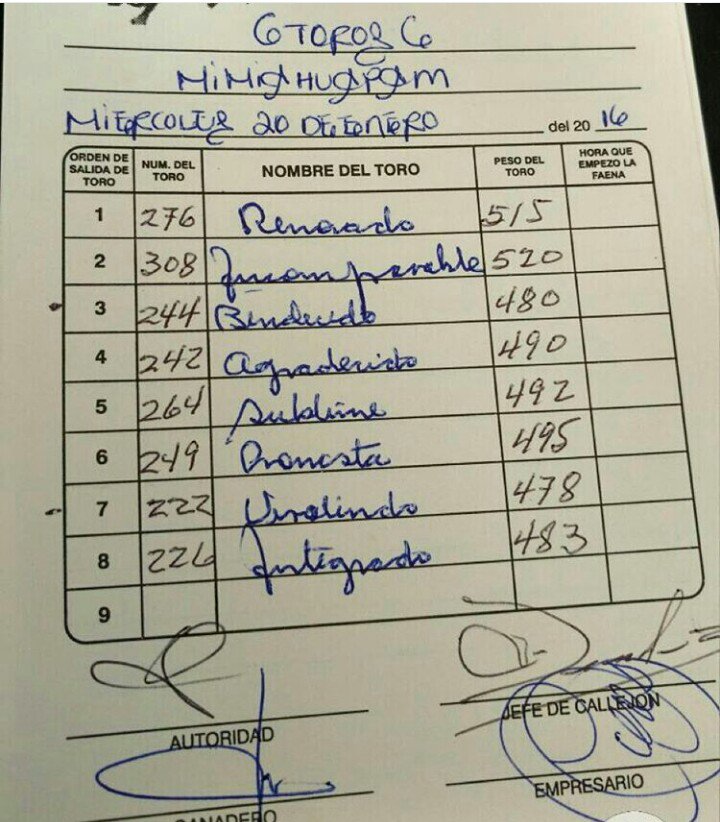 6 TOROS 6
MIMIAHUAPAM
MIERCOLES 20 DE ENERO del 20 16
ORDEN DE SALIDA DE TORO NUM. DEL TORO NOMBRE DEL TORO PESO DEL TORO HORA QUE EMPEZO LA FAENA
1 276 515
2 308 Incomparable 520
3 244 Bendecido 480
4 242 Agradecido 490
5 264 Sublime 492
6 249 495
7 222 478
8 226 Integrado 483
9
AUTORIDAD JEFE DE CALLEJON
GANADERO EMPRESARIO